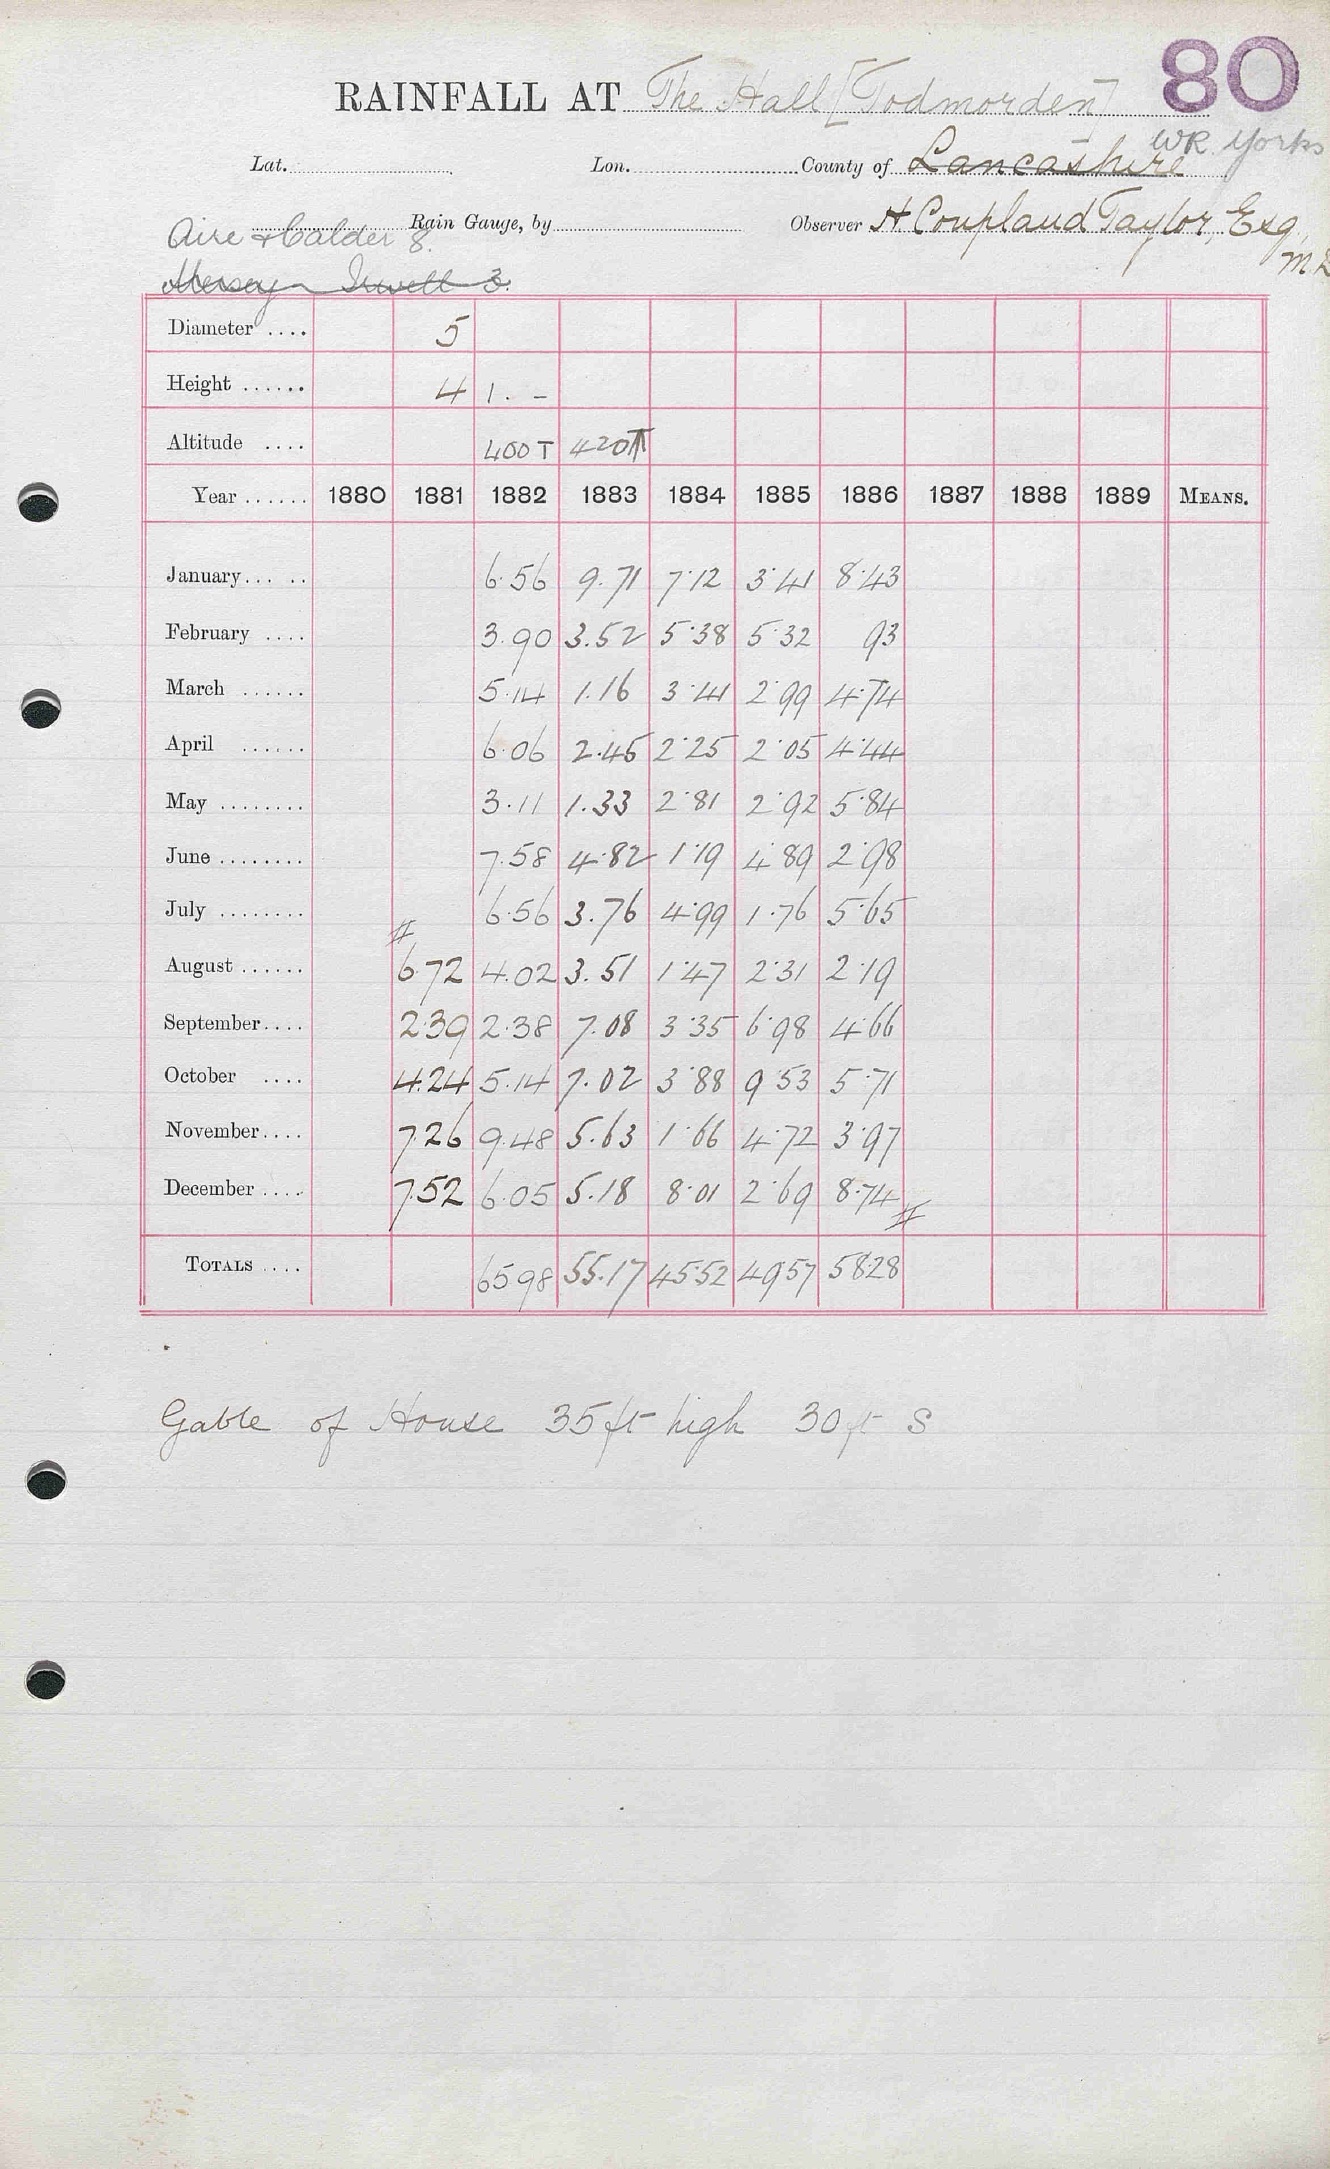 80
RAINFALL AT The Hall [Todmorden]
WR. Yorks
Lat. Lon. County of Lancashire
Rain Gauge, by Observer H Coupland Taylor, Esq, M D
Aire & Calder 8.
Mersey Irwell 3.
Diameter .... 5
Height ...... 4 1. -
Altitude .... 400 T 420 T
Year ...... 1880 1881 1882 1883 1884 1885 1886 1887 1888 1889 MEANS.
January... .. 6.56 9.71 7.12 3.41 8.43
February .... 3.90 3.52 5.38 5.32 93
March ...... 5.14 1.16 3.41 2.99 4.74
April ...... 6.06 2.45 2.25 2.05 4.44
May ........ 3.11 1.33 2.81 2.92 5.84
June ........ 7.58 4.82 1.19 4.89 2.98
July ........ 6.56 3.76 4.99 1.76 5.65
August ...... 6.72 4.02 3.51 1.47 2.31 2.19
September.... 2.39 2.38 7.08 3.35 6.98 4.66
October .... 4.24 5.14 7.02 3.88 9.53 5.71
November.... 7.26 9.48 5.63 1.66 4.72 3.97
December .... 7.52 6.05 5.18 8.01 2.69 8.74
TOTALS .... 65.98 55.17 45.52 49.57 58.28
Gable of House 35 ft high 30 ft S